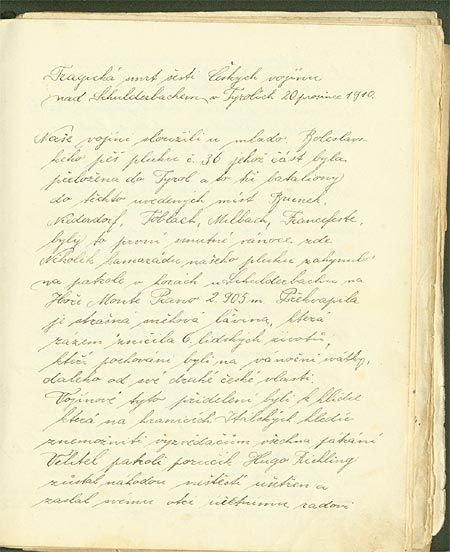 Tragická smrt šesti Českých vojínu
nad Schulderbachem v Tyrolích 20 prosince 1910.
Naši vojíni sloužili u mlado Boleslav-
ského pěš pluku č. 36 jehož část byla
přeložena do Tyrol a to tři bataliony
do těchto uvedených míst Bruneck,
Niderdorf, Toblach, Milbach, Francefeste,
byly to první smutné vánoce zde
Několik kamarádu našeho pluku zahynulo
na patrole v horách u Schulderbachu na
Hoře Monte Piano 2.905 m Překvapila
je strašná sněhová lavina, která
rázem zničila 6 lidských životů,
kteří pochováni byli na vánoční svátky,
daleko od své druhé české vlasti.
Vojínové tyto přideleni byli k hlídce
která na hranicích Italských hleděla
znemožniti vyzvědačům všechna pátrání
Velitel patroli poručík Hugo Richling
zůstal náhodou neštěstí ušetřen a
zaslal svému otci účetnímu radovi